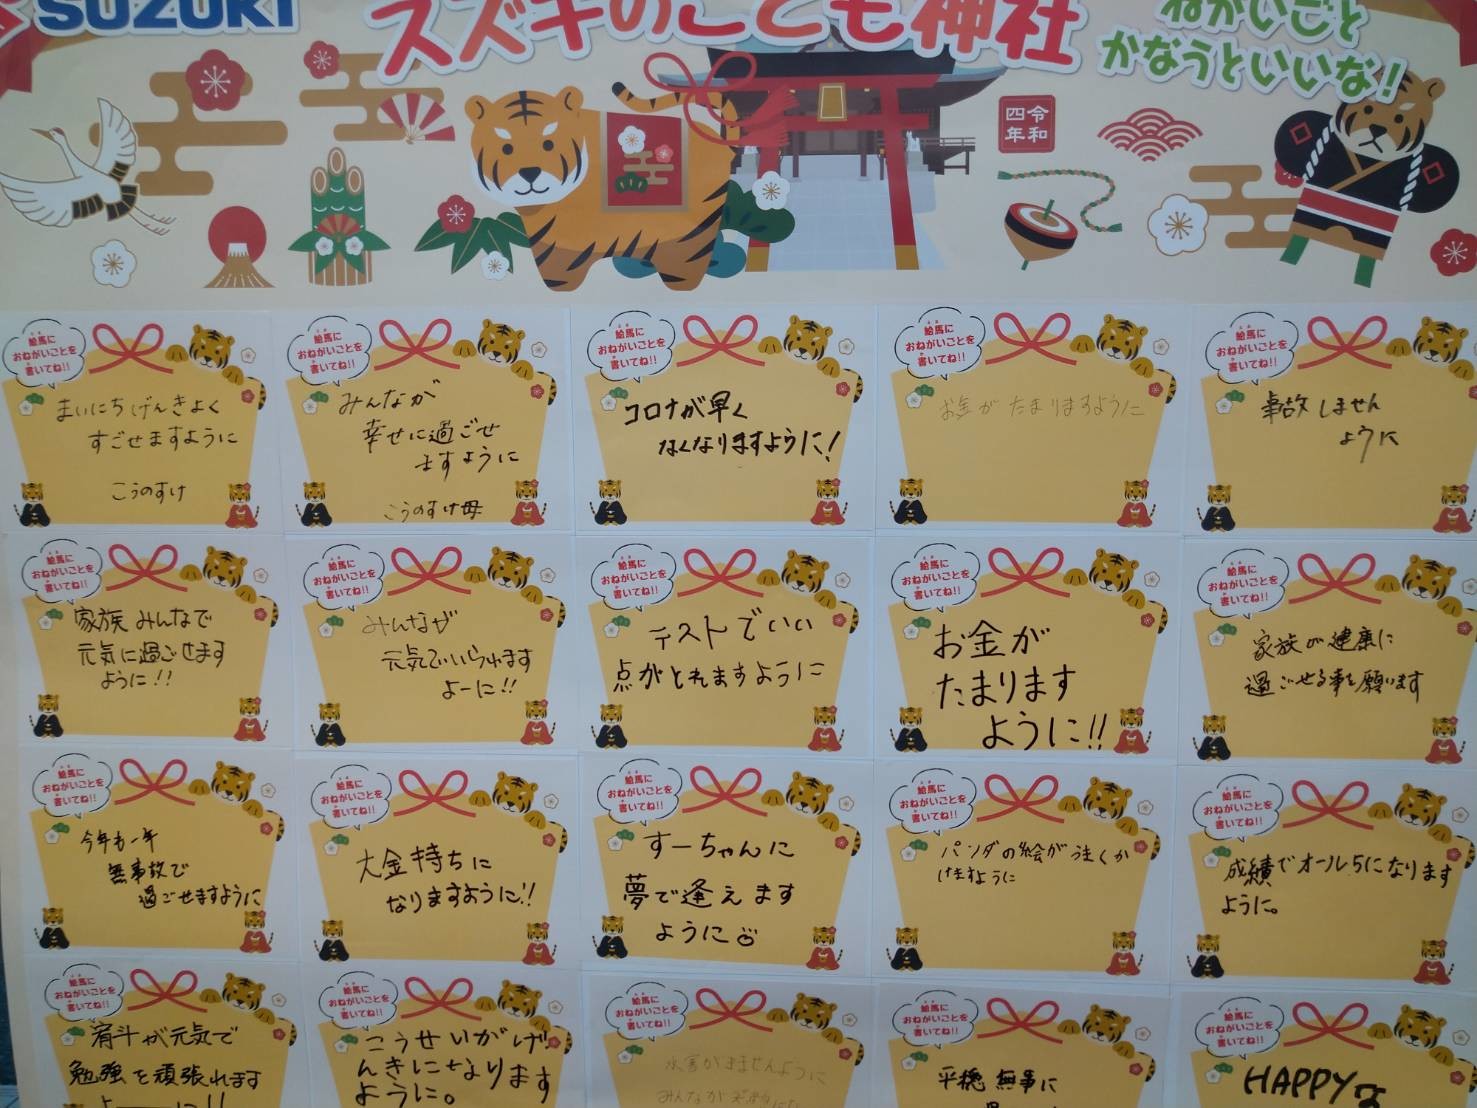 SUZUKI
スズキのこども神社
ねがいごと
かなうといいな!
令和
四年
絵馬に
おねがいごとを
書いてね!!
まいにちげんきよく
すごせますように
こうのすけ
絵馬に
おねがいごとを
書いてね!!
みんなが
幸せに過ごせ
ますように
こうのすけ母
絵馬に
おねがいごとを
書いてね!!
コロナが早く
なくなりますように!
絵馬に
おねがいごとを
書いてね!!
お金がたまりますように
絵馬に
おねがいごとを
書いてね!!
事故しません
ように
絵馬に
おねがいごとを
書いてね!!
家族みんなで
元気に過ごせます
ように!!
絵馬に
おねがいごとを
書いてね!!
みんなが
元気でいられます
よーに!!
絵馬に
おねがいごとを
書いてね!!
テストでいい
点がとれますように
絵馬に
おねがいごとを
書いてね!!
お金が
たまります
ように!!
絵馬に
おねがいごとを
書いてね!!
家族が健康に
過ごせる事を願います
絵馬に
おねがいごとを
書いてね!!
今年も一年
無事故で
過ごせますように
絵馬に
おねがいごとを
書いてね!!
大金持ちに
なりますように!!
絵馬に
おねがいごとを
書いてね!!
すーちゃんに
夢で逢えます
ように
絵馬に
おねがいごとを
書いてね!!
パンダの絵がうまくか
けますように
絵馬に
おねがいごとを
書いてね!!
成績でオール5になります
ように。
絵馬に
おねがいごとを
書いてね!!
斗が元気で
勉強を頑張れます
絵馬に
おねがいごとを
書いてね!!
こうせいがげ
んきになります
ように。
絵馬に
おねがいごとを
書いてね!!
水害がきませんように
みんなが
絵馬に
おねがいごとを
書いてね!!
平穏無事に
絵馬に
おねがいごとを
書いてね!!
HAPPYな